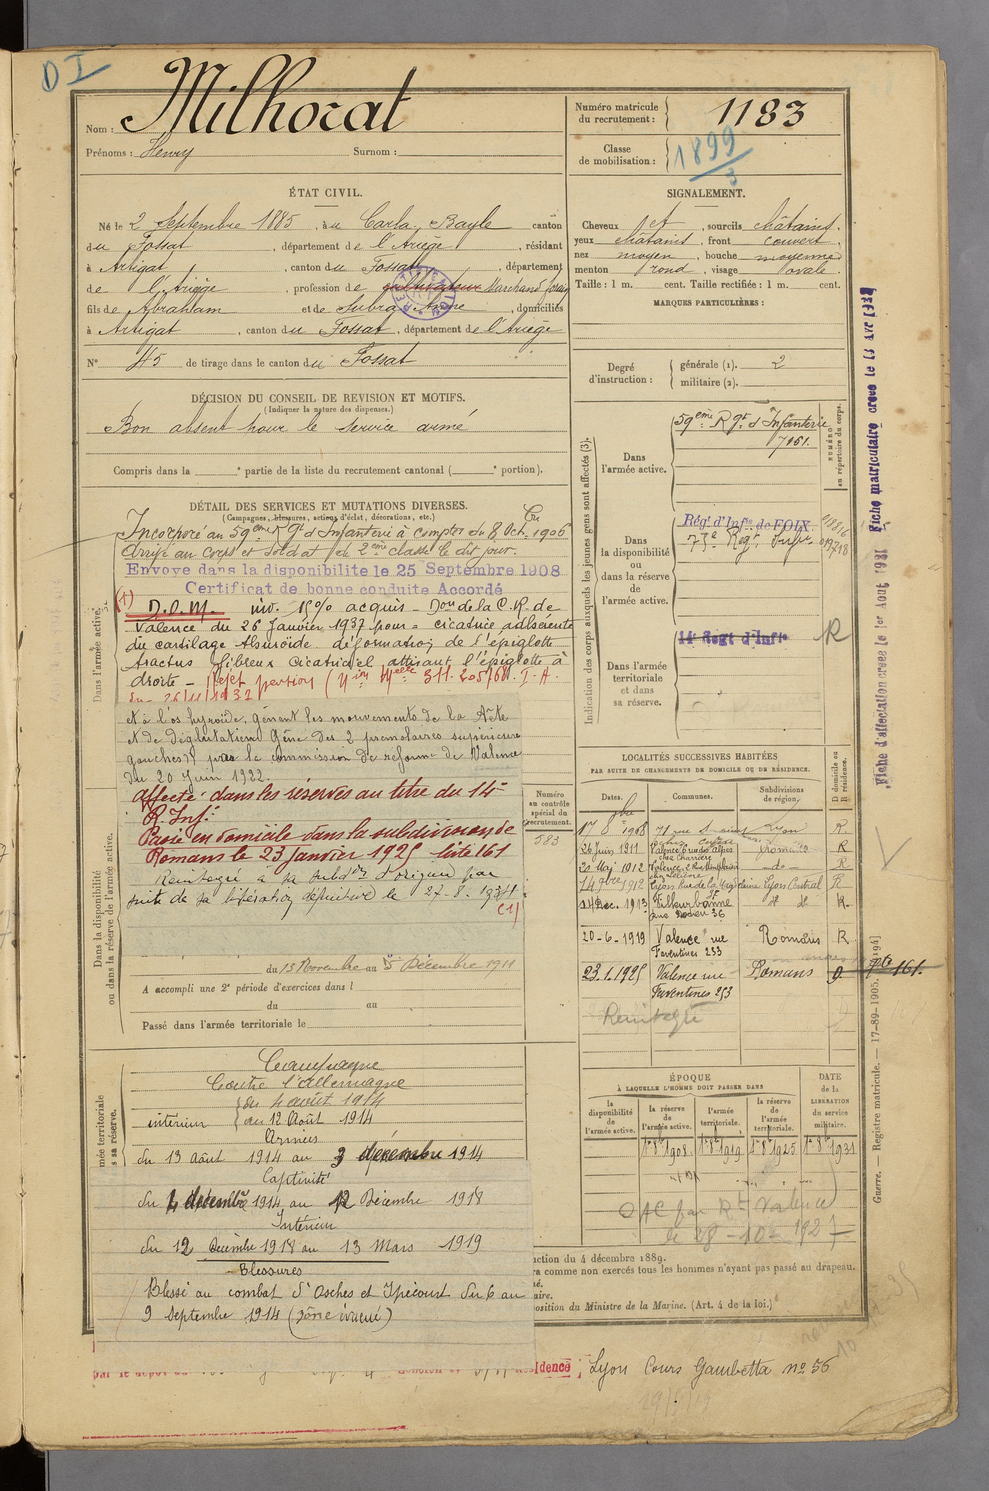 D I
Nom : Milhorat
Prénoms : Henry Surnom :
Numéro matricule du recrutement : 1183
Classe de mobilisation : 1899
3
ÉTAT CIVIL.
Né le 2 Septembre 1885, à Carla-Bayle canton
du Fossat, département de l'Ariège, résidant
à Artigat, canton du Fossat, département
de l'Ariège, profession de cultivateur Marchand forain
fils de Abraham et de Subra Anne, domiciliés
à Artigat, canton du Fossat, département de l'Ariège
N° 45 de tirage dans le canton du Fossat
SIGNALEMENT.
Cheveux et, sourcils châtains.
yeux châtains, front couvert,
nez moyen, bouche moyenne
menton rond, visage ovale.
Taille : 1 m. cent. Taille rectifiée : 1 m. cent.
MARQUES PARTICULIÈRES :
Degré d'instruction : générale (1). 2
militaire (2).
DÉCISION DU CONSEIL DE REVISION ET MOTIFS.
(Indiquer la nature des dispenses.)
Bon absent pour le service armé
Compris dans la e partie de la liste du recrutement cantonal ( e portion).
DÉTAIL DES SERVICES ET MUTATIONS DIVERSES.
(Campagnes, blessures, actions d'éclat, décorations, etc.)
Incorporé au 59eme Rgt d'Infanterie à compter du 8 Oct. 1906
Arrivé au corps et soldat de 2eme classe le dit jour.
Envoyé dans la disponibilité le 25 Septembre 1908
Certificat de bonne conduite Accordé
(1) D.O.M. inv. 15% acquis - Don de la C.R. de
Valence du 26 Janvier 1937 pour = cicatrice adhérente
du cartilage thyroïde déformation de l'épiglotte
tractus fibreux cicatriciel attirant l'épiglotte à
droite - Rejet pension
du 26/11/1932
et à l'os hyroïde, gênant les mouvements de la tête
et de déglutition. Gêne des 2 premolaires supérieures
gauches par la commission de réforme de Valence
du 20 Juin 1922.
Affecté dans les réserves au titre du 14e
R. Inf.
Passé en domicile dans la subdivision de
Romans le 23 Janvier 1925 liste 161
Réintégré à sa subd. d'origine par
suite de sa libération définitive le 27-8-
(1)
du 15 Novembre au 5 Décembre 1911
A accompli une 2e période d'exercices dans l
du au
Passé dans l'armée territoriale le
Dans l'armée active.
Dans la disponibilité
ou dans la réserve de l'armée active.
Numéro au contrôle spécial du recrutement.
583
Indication des corps auxquels les jeunes gens sont affectés (3).
NUMÉRO au répertoire du corps.
Dans l'armée active.
59eme Rgt d'Infanterie
7051.
Dans la disponibilité ou dans la réserve de l'armée active.
Régt d'Infie de FOIX
73e Régt Infie
Dans l'armée territoriale et dans sa réserve.
14e Régt d'Infie
R
LOCALITÉS SUCCESSIVES HABITÉES
PAR SUITE DE CHANGEMENTS DE DOMICILE OU DE RÉSIDENCE.
Dates. Communes. Subdivisions de région. D domicile ou R résidence.
17 8bre 1908 71 rue Lyon R.
26 Juin 1911 Valence Romans R
chez Charrière
20 Mai 1912 Valence -do- R
14 9bre 1912 Lyon Rue de la Magdeleine Lyon Central R
24 Dec. 1913 Villeurbanne R.
36
20-6-1919 Valence rue Faventines 253 Romans R
23.1.1925 Valence rue Faventines 253 Romans D
liste 161.
Réintégré
ÉPOQUE
À LAQUELLE L'HOMME DOIT PASSER DANS
DATE de la LIBÉRATION du service militaire.
la disponibilité de l'armée active. la réserve de l'armée active. l'armée territoriale. la réserve de l'armée territoriale.
1er 8bre 1908. 1er 8bre 1919 1er 8bre 1925 1er 8bre 1931
par Rt Valence
le 28-10-1927
Campagne
Contre l'Allemagne
intérieur du 4 août 1914
au 12 Août 1914
Armées
du 13 Août 1914 au 3 décembre 1914
Captivité
du 4 décembre 1914 au 12 Décembre 1918
Intérieur
du 12 Décembre 1918 au 13 Mars 1919
Blessures
Blessé au combat d'Osches et Ipécourt du 6 au
9 septembre 1914 (zone évacué)
uction du 4 décembre 1889.
ra comme non exercés tous les hommes n'ayant pas passé au drapeau.
position du Ministre de la Marine. (Art. 4 de la loi.)
Résidence Lyon Cours Gambetta no 56
Fiche d'affectation créée le 1er Août 1931 Fiche matriculaire créée le
Guerre. — Registre matricule. — 17-89-1905.